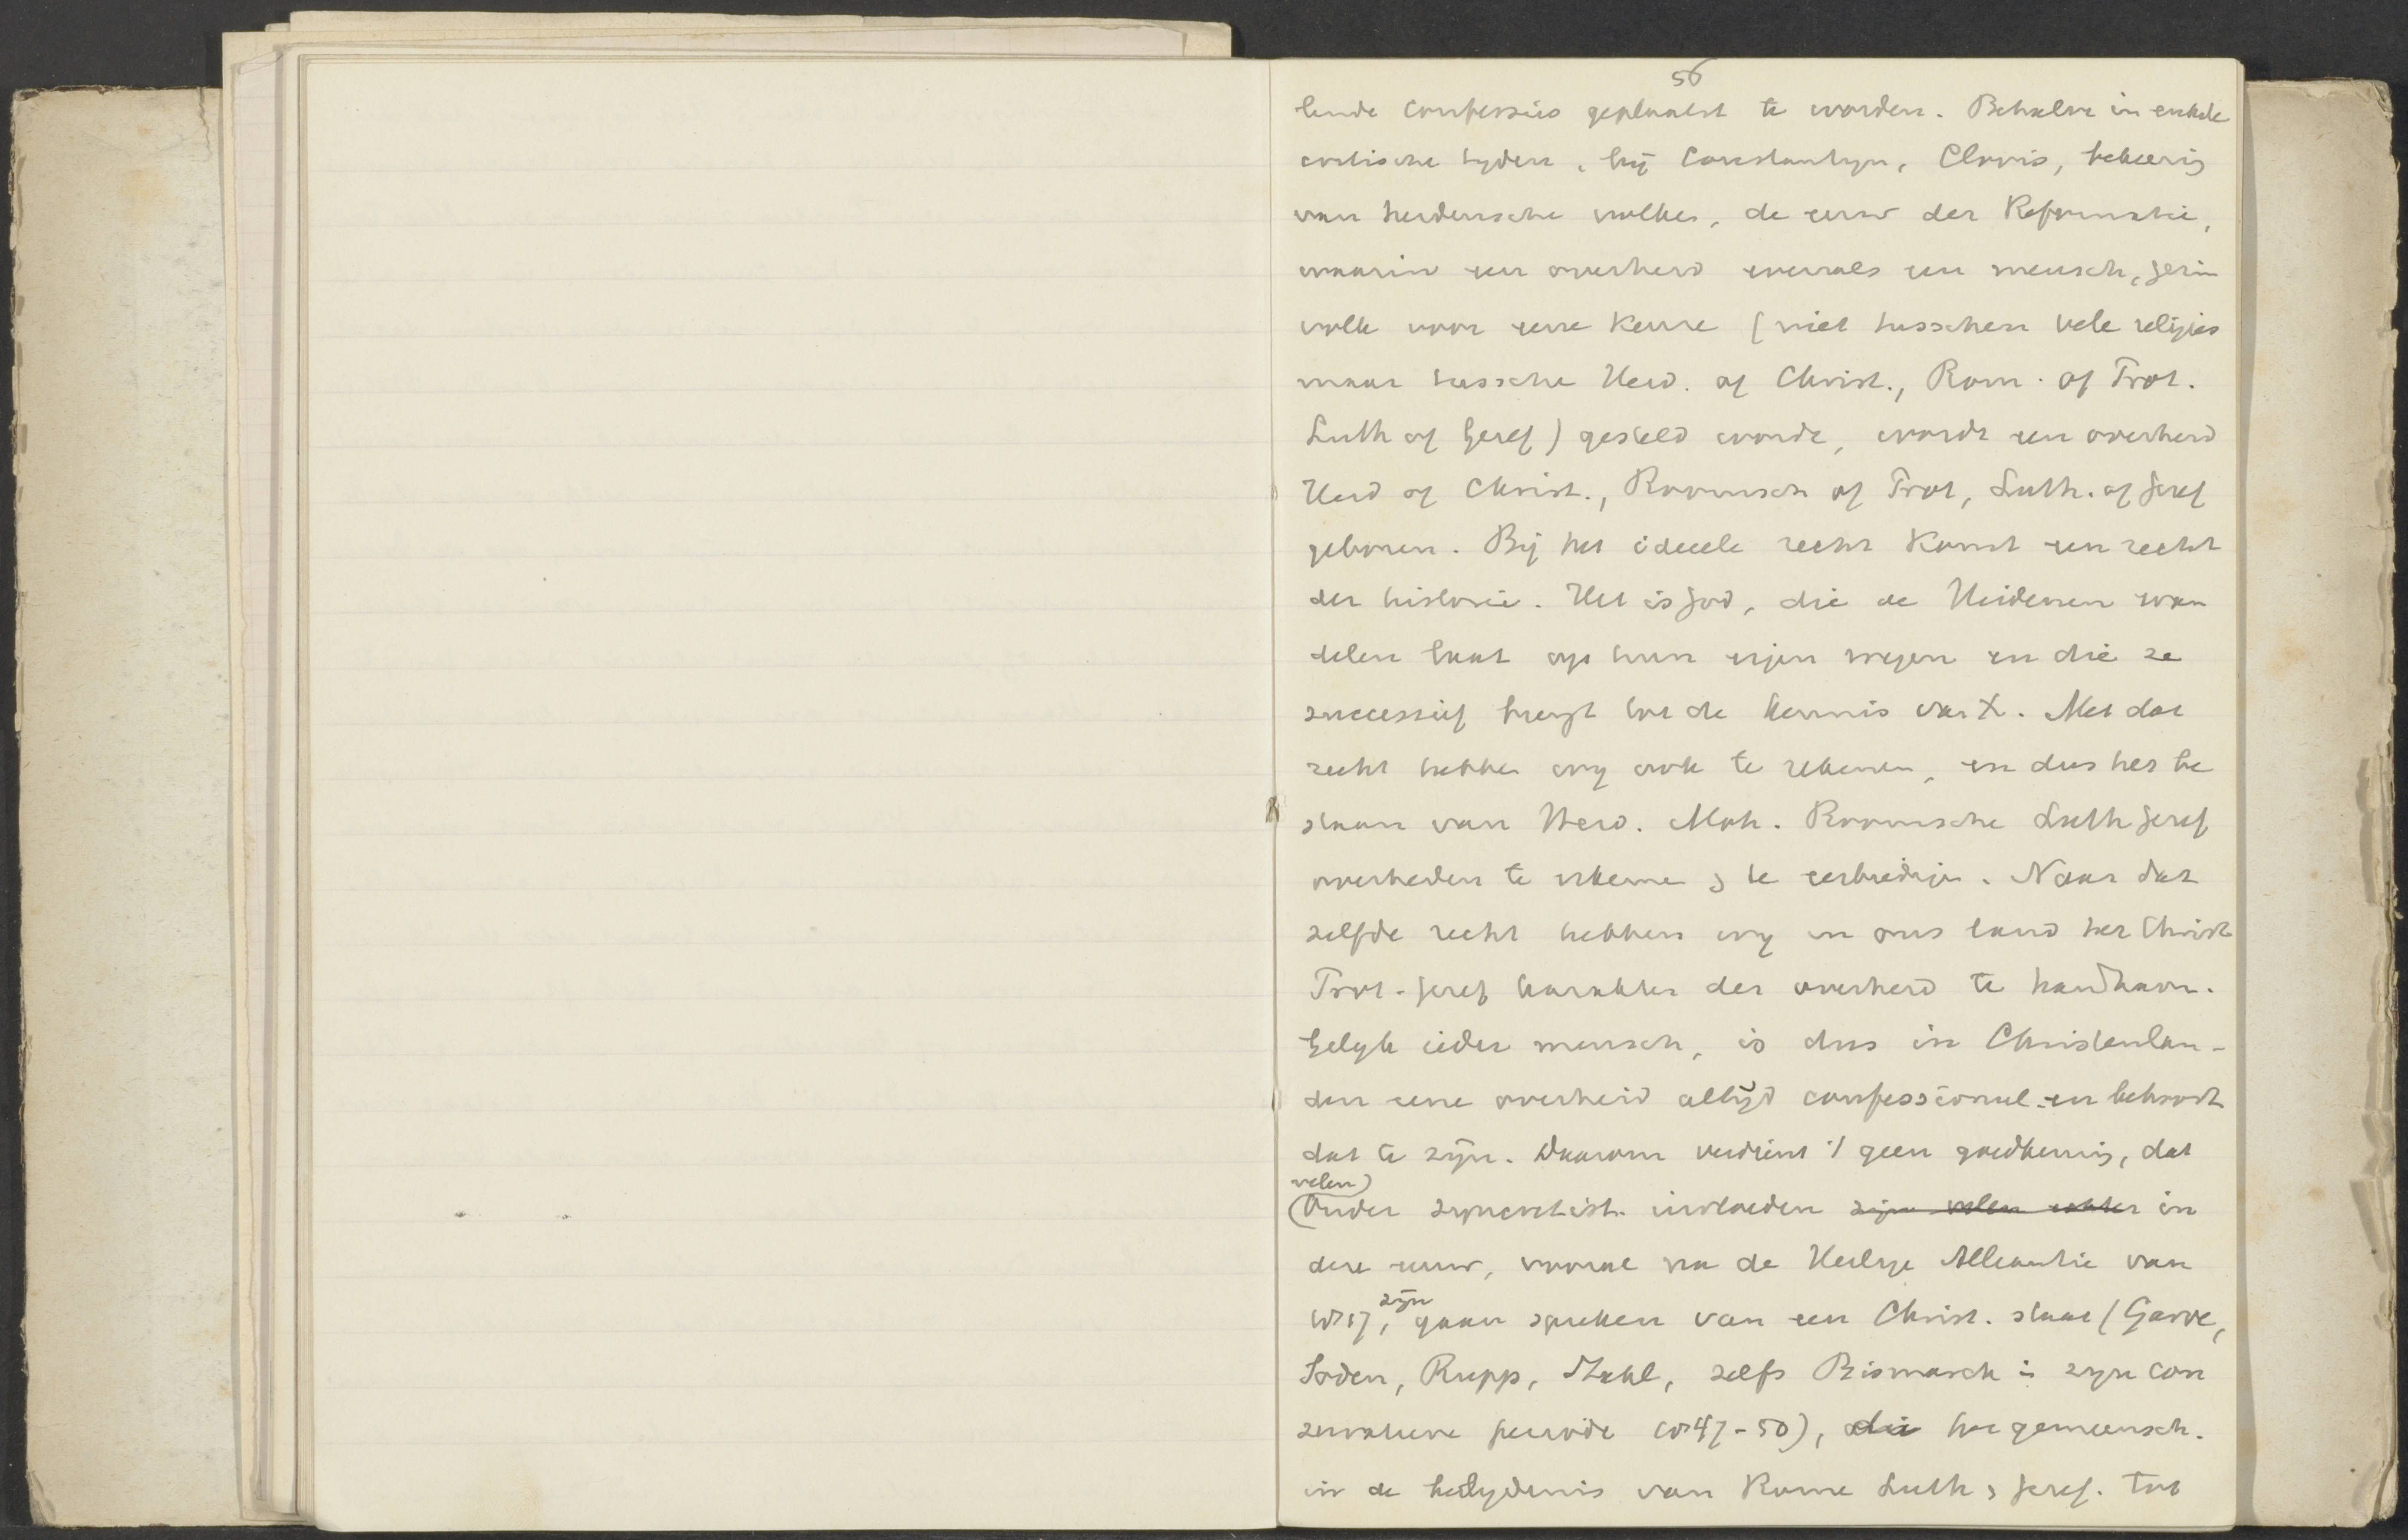 56
lende confessies geplaatst te worden. Behalve in enkele
critische tyden, bij Constantyn, Clovis, bekeering
van heidensche volken, de eeuw der Reformatie,
waarin een overheid evenals een mensch, gezin
volk voor eene keuze (niet tusschen vele religies
maar tussche Heid. of Christ., Rom. of Prot.
Luth of Geref) gesteld wordt, wordt een overheid
Heid of Christ., Roomsch of Prot, Luth. of Geref
geboren. Bij het ideeele recht komt een recht
der historie. Het is God, die de Heidenen wan
delen laat op hun eigen wegen en die ze
successief brengt tot de kennis van X. Met dat
recht hebben wy ook te rekenen, en dus het be
staan van Heid. Moh. Roomsche Luth Geref
overheden te erkenne & te eerbiedige. Naar dat
zelfde recht hebben wy in ons land het Christ
Prot-Geref karakter der overheid te handhaven.
Gelyk ieder mensch, is dus in Christenlan-
den eene overheid altijd confessioneel en behoort
dat te zijn. Daarom verdient 't geen goedkeuring, dat
velen
Onder syncretist. invloeden zijn velen echter in
deze eeuw, vooral na de Heilige Alleantie van
1815, zijn gaan spreken van een Christ. staat (Garve,
Soden, Rupp, Stahl, zelfs Bismarck in zyn con
servatieve periode 1847-50), die het gemeensch.
in de belydenis van Rome Luth & Geref. tot